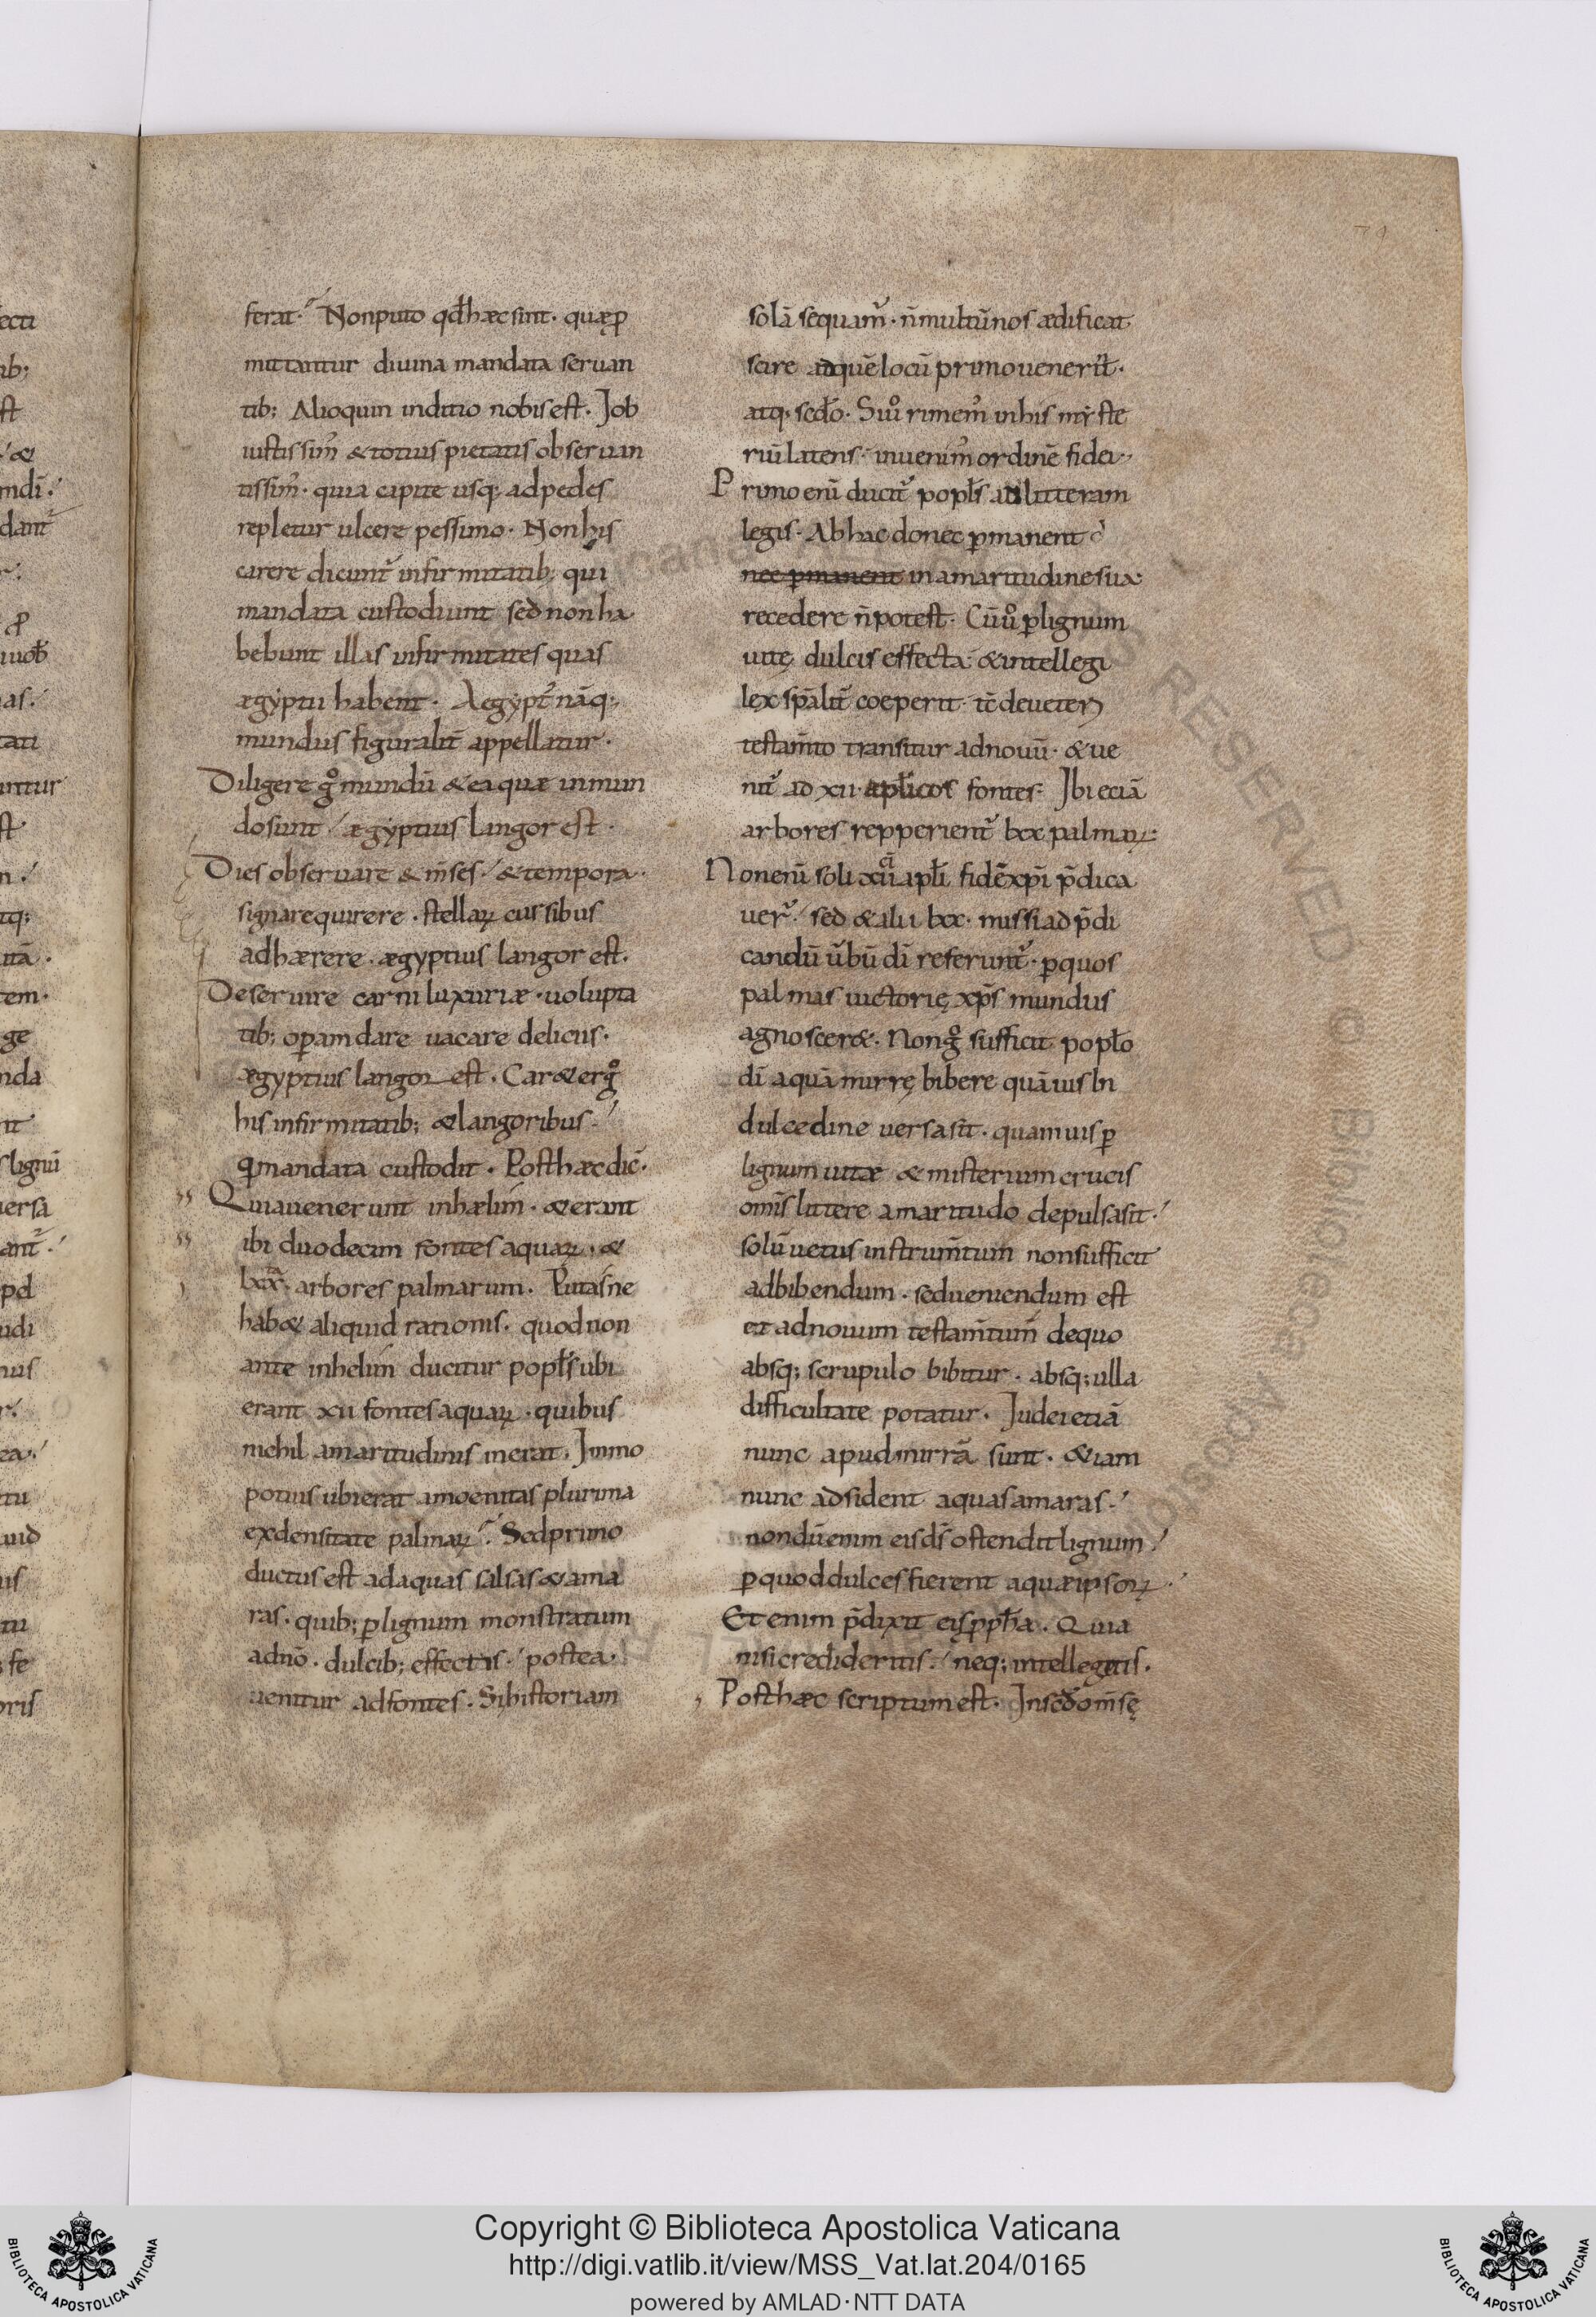 ferat· Non puto qđ hæc sint· quæ ꝑ
mittantur diuina mandata seruan
tib; Alioquin inditio nobis est· Job
iustissim᷒ & totius pietatis obseruan
tissim᷒· quia capite usq; ad pedes
repletur ulcere pessimo· Non his
carere dicunt᷒ infirmitatib; qui
mandata custodiunt sed non ha
bebunt illas infirmitates quas
ægyptii habent· Aegypt᷒ nāq;
mundus figuralit̄ appellatur·
Diligere gͦ mundū & ea quæ in mun
do sunt ægyptius langor est·
Dies obseruare & m̄ses & tempora·
signa requirere· stellaꝝ cursibus
adhærere· ægyptius langor est·
Deseruire carni luxuriæ· uolupta
tib; oꝑam dare uacare deliciis·
ægyptius langor est· Car& ergͦ
his infirmitatib; & langoribus·
q mandata custodit· Post hæc dic̄·
Quia uenerunt in hælim· & erant
ibi duodecim fontes aquaꝝ· &
lxx· arbores palmarum· Putasne
hab& aliquid rationis· quod non
ante in helim ducitur popl̄s ubi
erant xii fontes aquaꝝ· quibus
nichil amaritudinis inerat· Immo
potius ubi erat amoenitas plurima
ex densitate palmaꝝ· Sed primo
ductus est ad aquas salsas & ama
ras· quib; ꝑ lignum monstratum
a dnō· dulcib; effectis· postea·
uenitur ad fontes· Si historiam
solā sequam᷒· n̄ multū nos ædificat
scire ad quē locū primo uenerit·
atq; sedo· Si uͦ rimem᷒ in his myste
riū latens· inuenim᷒ ordinē fidei·
Primo enī ducit᷒ popl̄s ad litteram
legis· Ab hac donec ꝑmanent
nec ꝑmanent in amaritudine sua
recedere n̄ potest· Cū uͦ ꝑ lignum
uitę dulcis effecta & intellegi
lex sp̄alit̄ coeperit tc̄ de ueteri
testam̄to transitur ad nouū· & ue
nit᷒ ad xii· apl̄icos fontes· Ibi etiā
arbores repperient᷒ lxx palmaꝝ·
Non enī soli xii apl̄i fidē xp̄i p̄dica
uer᷒· sed & alii lxx· missi ad p̄di
candū u᷒bū dī referunt᷒· ꝑ quos
palmas uictorię xp̄s mundus
agnoscer&· Non gͦ sufficit popl̄o
dī aquā mirrę bibere quāuis In
dulcedine uersa sit· quamuis ꝑ
lignum uitæ & misterium crucis
om̄is littere amaritudo depulsa sit·
solū uetus instrum̄tum non sufficit
ad bibendum· sed ueniendum est
et ad nouum testam̄tum de quo
absq; scrupulo bibitur· absq; ulla
difficultate potatur· Judei etiā
nunc apud mirrā sunt· & iam
nunc adsident aquas amaras·
nondū enim eis ds̄ ostendit lignum
ꝑ quod dulces fierent aquæ ipsoꝝ·
Etenim p̄dixit eis ꝓph̄a· Quia
nisi credideritis· neq; intellegetis·
Post hæc scriptum est· In sedo m̄sę
Copyright © Biblioteca Apostolica Vaticana
http://digi.vatlib.it/view/MSS_Vat.lat.204/0165
powered by AMLAD·NTT DATA
BIBLIOTECA APOSTOLICA VATICANA
BIBLIOTECA APOSTOLICA VATICANA